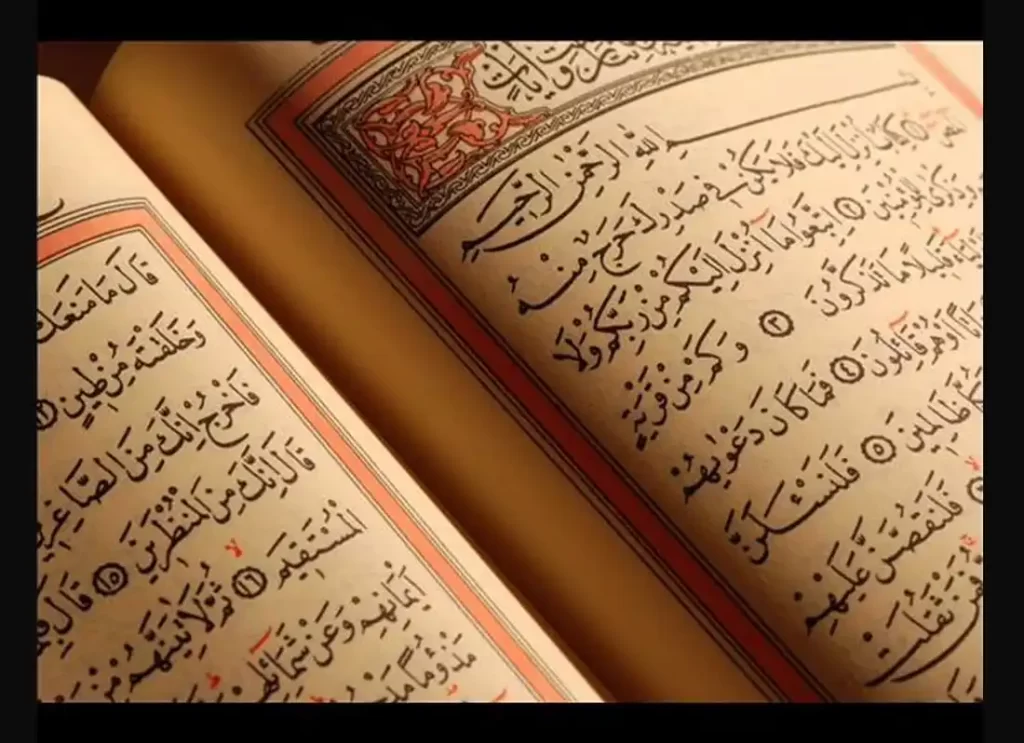 بِسْمِ اللهِ الرَّحْمٰنِ الرَّحِيمِ
كِتَابٌ اُنْزِلَ اِلَيْكَ فَلَا يَكُنْ فِي صَدْرِكَ حَرَجٌ مِنْهُ
وَذِكْرٰى لِلْمُؤْمِنِينَ ٢ اِتَّبِعُوا مَا اُنْزِلَ اِلَيْكُمْ مِنْ رَبِّكُمْ وَلَا
قَلِيلًا مَا تَذَكَّرُونَ ٣ وَكَمْ مِنْ قَرْيَةٍ
اَوْ هُمْ قَائِلُونَ ٤ فَمَا كَانَ دَعْوٰيهُمْ
ظَالِمِينَ ٥ فَلَنَسْـَٔلَنَّ
فَلَنَقُصَّنَّ عَلَيْهِمْ
فَمَنْ ثَقُلَتْ
قَالَ مَا مَنَعَكَ
وَخَلَقْتَهُ مِنْ طِينٍ
فَاخْرُجْ اِنَّكَ مِنَ الصَّاغِرِينَ
قَالَ اِنَّكَ مِنَ الْمُنْظَرِينَ ١٥ قَالَ
الْمُسْتَقِيمَ ١٦ ثُمَّ لَاٰتِيَنَّهُمْ مِنْ
اَيْمَانِهِمْ وَعَنْ شَمَائِلِهِمْ
مَذْؤُمًا